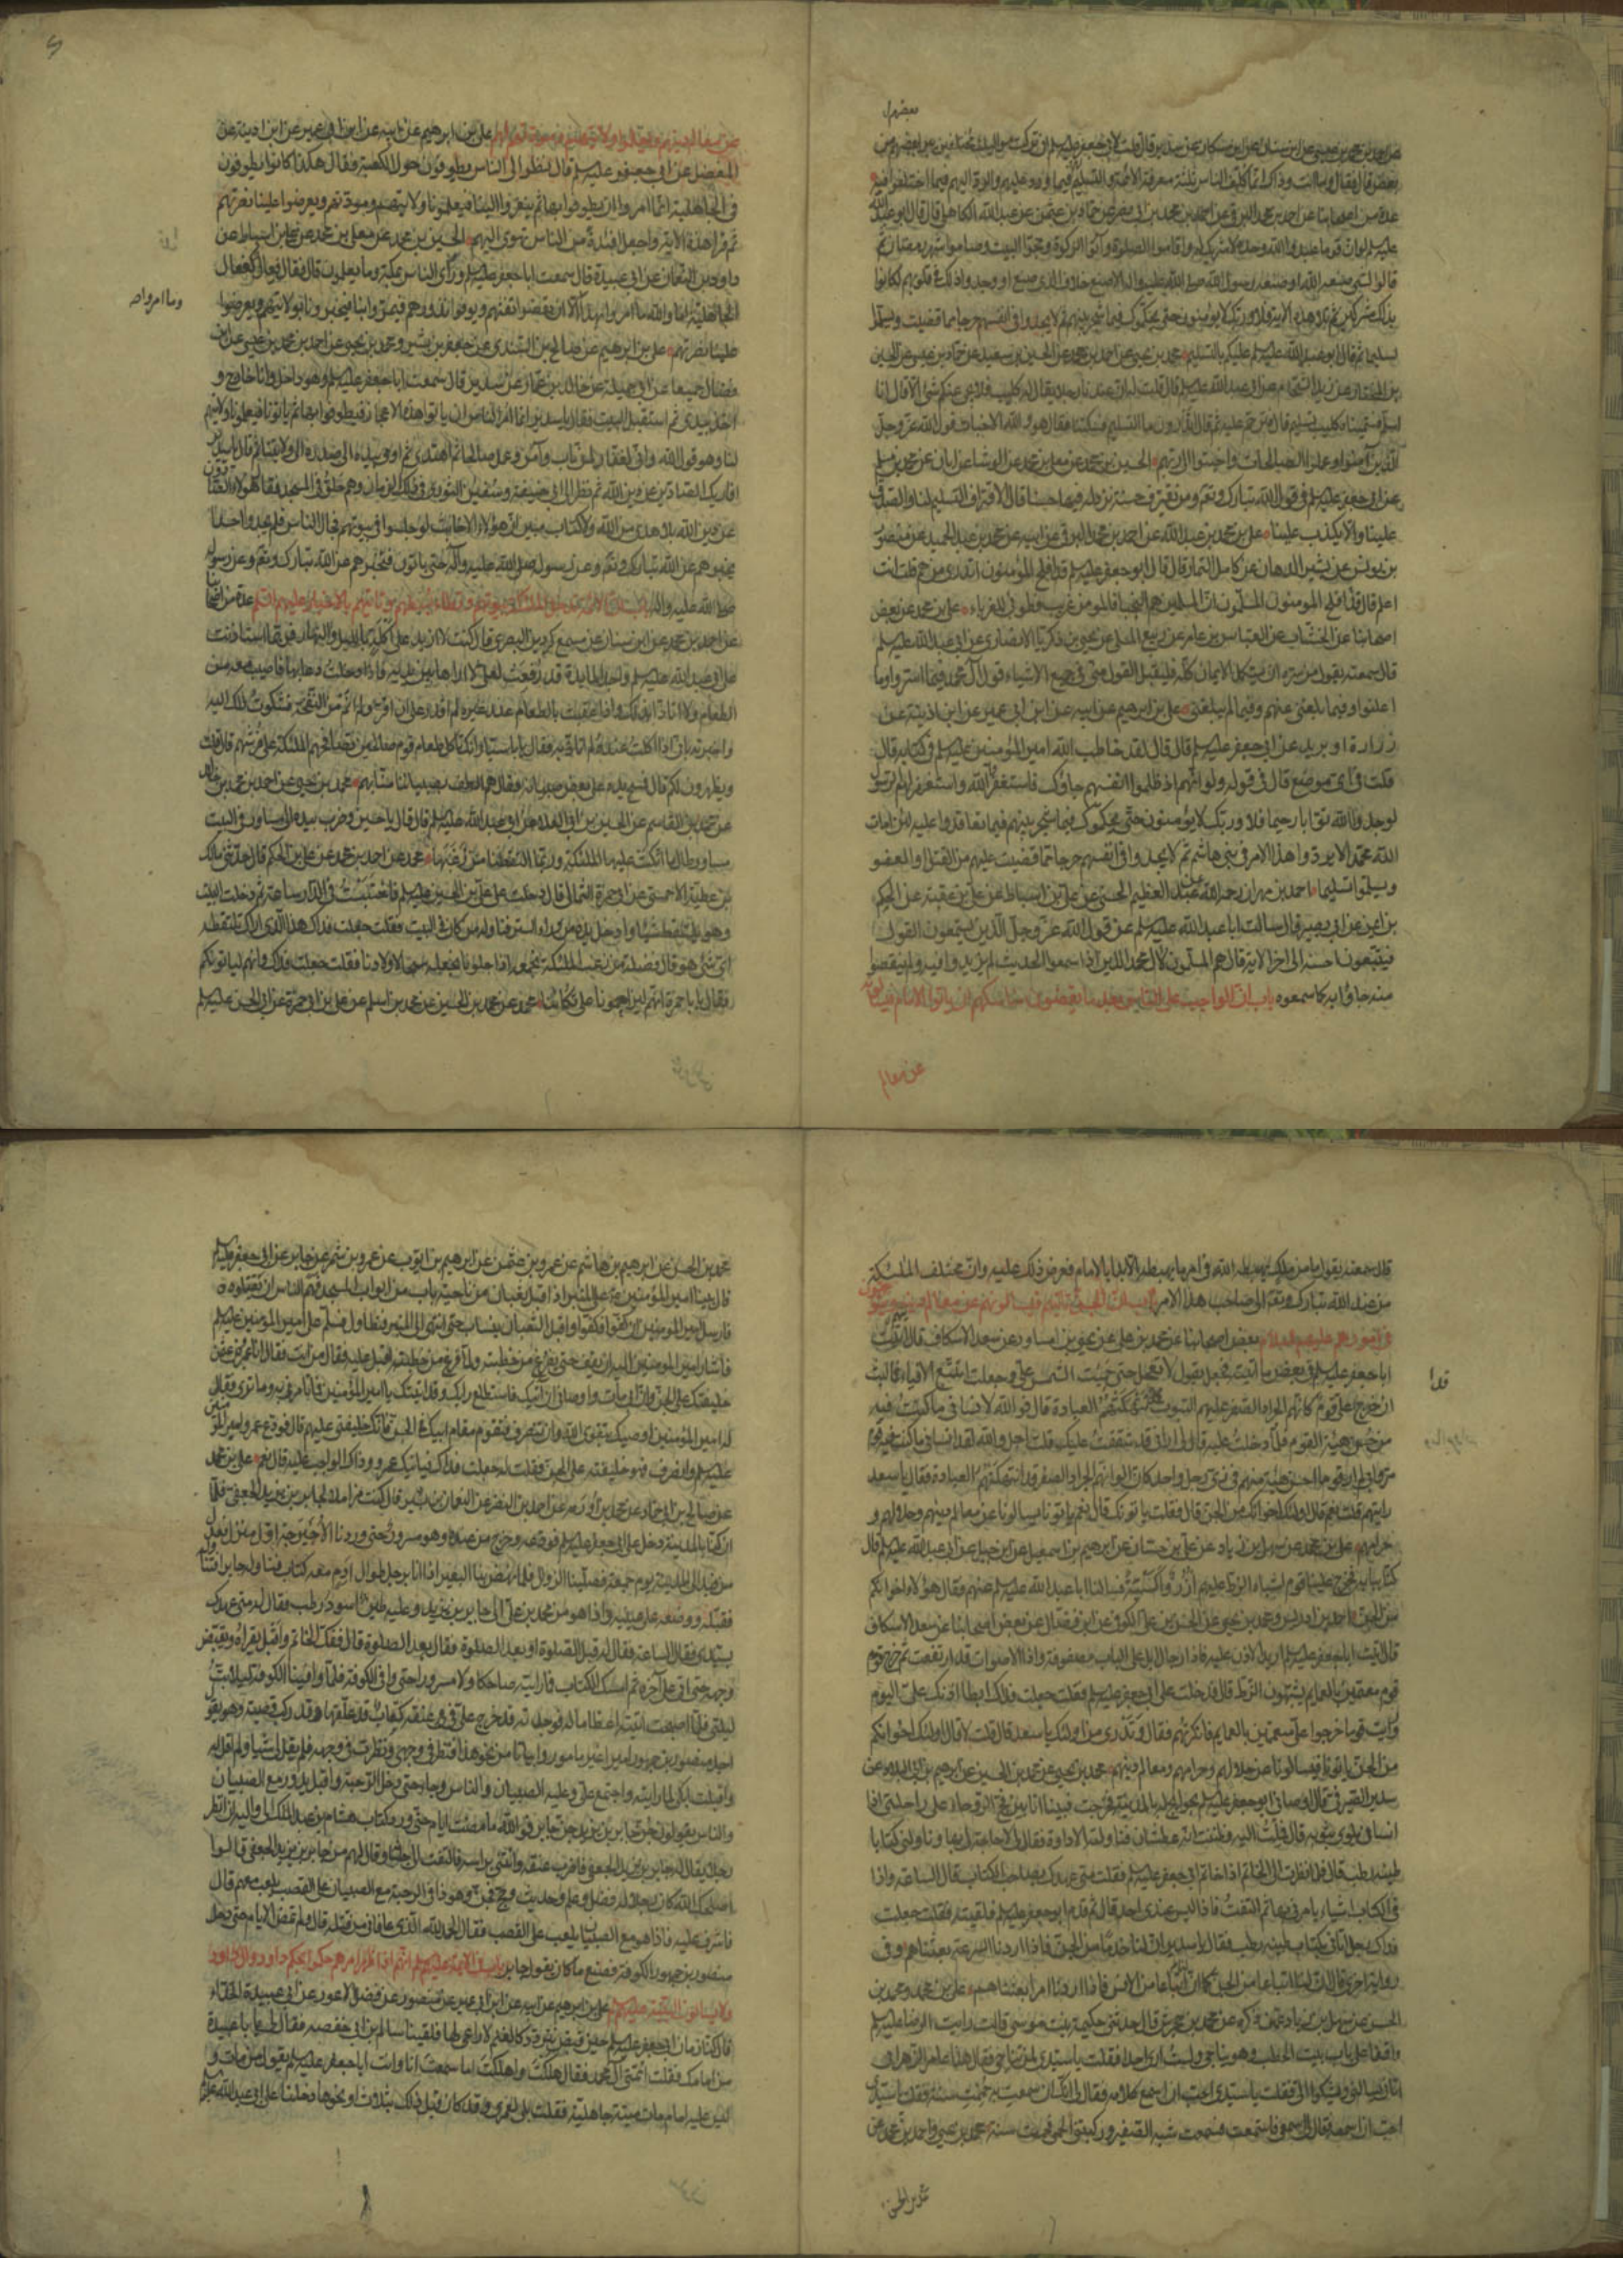 بعضهم
بعض قال فقال وما انت وذاك انما كلف الناس ثلثة معرفة الائمة والتسليم لهم فيما ورد عليهم والرد اليهم فيما اختلفوا فيه
عدة من اصحابنا عن احمد بن محمد البرقي عن احمد بن محمد بن ابى نصر عن حماد بن عثمن عن عبد الله الكاهلى قال قال ابو عبد الله
عليه سلم لو ان قوما عبدوا الله وحده لا شريك له واقاموا الصلوة وآتوا الزكوة وحجوا البيت وصاموا شهر رمضان ثم
قالوا لشى صنعه الله او صنعه رسول الله صلى الله عليه واله الا صنع خلاف الذى صنع او وجدوا ذلك فى قلوبهم لكانوا
بذلك مشركين ثم تلا هذه الاية فلا وربك لا يؤمنون حتى يحكموك فيما شجر بينهم ثم لا يجدوا فى انفسهم حرجا مما قضيت ويسلموا
تسليما ثم قال ابو عبد الله عليه سلم عليكم بالتسليم محمد بن يحيى عن احمد بن محمد عن الحسين بن سعيد عن حماد بن عيسى عن الحسين
الذين آمنوا وعملوا الصالحات واخبتوا الى ربهم الحسين بن محمد عن معلى بن محمد عن الوشا عن ابان عن محمد بن مسلم
عن ابى جعفر عليه سلم فى قول الله تبارك وتعـ ومن يقترف حسنة نزد له فيها حسنا قال الاقتراف التسليم لنا والصدق
علينا والا يكذب علينا على بن محمد بن عبد الله عن احمد بن محمد البرقى عن ابيه عن محمد بن عبد الحميد عن منصور
بن يونس عن بشير الدهان عن كامل التمار قال قال ابو جعفر عليه سلم قد افلح المؤمنون اتدرى من هم قلت انت
اعلم قال قد افلح المومنون المسلمون ان المسلمين هم النجبا فالمومن غريب فطوبى للغرباء على بن محمد عن بعض
اصحابنا عن الخشاب عن العباس بن عامر عن ربيع المسلى عن يحيى بن زكريا الانصارى عن ابى عبد الله عليه سلم
قال سمعته يقول من سره ان يستكمل الايمان كله فليقل القول منى فى جميع الاشياء قول آل محمد فيما اسروا وما
اعلنوا وفيما بلغنى عنهم وفيما لم يبلغنى على بن ابرهيم عن ابيه عن ابن ابى عمير عن ابن اذينة عن
زرارة او بريد عن ابى جعفر عليه سلم قال قال لقد خاطب الله امير المؤمنين عليه سلم فى كتابه قال
قلت فى اى موضع قال فى قوله ولو انهم اذ ظلموا انفسهم جاؤك فاستغفروا الله واستغفر لهم الرسول
لوجدوا الله توابا رحيما فلا وربك لا يؤمنون حتى يحكموك فيما شجر بينهم فيما تعاقدوا عليه لئن امات
الله محمدا لا يردوا هذا الامر فى بنى هاشم ثم لا يجدوا فى انفسهم حرجا مما قضيت عليهم من القتل او العفو
ويسلموا تسليما احمد بن مهران رحمه الله عن عبد العظيم الحسنى عن على بن اسباط عن على بن عقبة عن الحكم
بن ايمن عن ابى بصير قال سالت ابا عبد الله عليه سلم عن قول الله عز وجل الذين يستمعون القول
فيتبعون احسنه الى اخر الاية قال هم المسلمون لآل محمد الذين اذا سمعوا الحديث لم يزيدوا فيه ولم ينقصوا
منه جاؤا به كما سمعوه باب ان الواجب على الناس بعد ما يقضون مناسكهم ان ياتوا الامام فيسالونه
عن معالم
عن معالم دينهم ويعلمونه ولايتهم ومودتهم له على بن ابرهيم عن ابيه عن ابن ابى عمير عن ابن اذينة عن
الفضيل عن ابى جعفر عليه سلم قال نظر الى الناس يطوفون حول الكعبة فقال هكذا كانوا يطوفون
فى الجاهلية انما امروا ان يطوفوا بها ثم ينفروا الينا فيعلمونا ولايتهم ومودتهم ويعرضوا علينا نصرتهم
ثم قرا هذه الاية واجعل افئدة من الناس تهوى اليهم الحسين بن محمد عن معلى بن محمد عن على بن اسباط عن
داود بن النعمان عن ابى عبيدة قال سمعت ابا جعفر عليه سلم وراى الناس بمكة وما يعملون قال فقال فعال كفعال
الجاهلية اما والله ما امروا بهذا وما امروا الا ان يقضوا تفثهم وليوفوا نذورهم فيمروا بنا فيخبرونا بولايتهم ويعرضوا
وما امروا صح
علينا نصرتهم على بن ابرهيم عن صالح بن السندى عن جعفر بن بشير ومحمد بن يحيى عن احمد بن محمد بن عيسى عن ابن
فضال جميعا عن ابى جميلة عن خالد بن عمار عن سدير قال سمعت ابا جعفر عليه سلم وهو داخل وانا خارج و
اخذ بيدى ثم استقبل البيت فقال يا سدير انما امر الناس ان ياتوا هذه الاحجار فيطوفوا بها ثم ياتونا فيعلمونا ولايتهم
لنا وهو قول الله وانى لغفار لمن تاب وآمن وعمل صالحا ثم اهتدى ثم اومى بيده الى صدره الى ولايتنا ثم قال يا سدير
عن دين الله بلا هدى من الله ولا كتاب مبين ان هؤلاء الاخابث لو جلسوا فى بيوتهم فجال الناس فلم يجدوا احدا
يخبرهم عن الله تبارك وتعـ وعن رسوله صلى الله عليه وآله حتى ياتونا فنخبرهم عن الله تبارك وتعـ وعن رسوله
صلى الله عليه واله باب ان الائمة تدخل الملئكة بيوتهم وتطأ بسطهم وتاتيهم بالاخبار عليهم السلم عدة من اصحابنا
عن احمد بن محمد عن ابن سنان عن مسمع كردين البصرى قال كنت لا ازيد على اكلة بالليل والنهار فربما استاذنت
على ابى عبد الله عليه سلم واجد المايدة قد رفعت لعلى لا اراها بين يديه فاذا دخلت دعا بها فاصيب معه من
الطعام ولا اتاذى بذلك واذا عقبت بالطعام عند غيره لم اقدر على ان اقر ولم انم من النفخة فشكوت ذلك اليه
واخبرته بانى اذا اكلت عنده لم اتاذ به فقال يا ابا سيار انك تاكل طعام قوم صالحين تصافحهم الملئكة على فرشهم قال قلت
ويظهرون لكم قال فمسح يده على بعض صبيانه فقال هم الطف بصبياننا منا بهم محمد بن يحيى عن احمد بن محمد بن خالد
عن محمد بن القاسم عن الحسين بن ابى العلاء عن ابى عبد الله عليه سلم قال قال يا حسين وضرب بيده الى مساور فى البيت
مساور طال ما اتكت عليها الملئكة وربما التقطنا من زغبها محمد عن احمد بن محمد عن على بن الحكم قال حدثنى مالك
بن عطية الاحمسى عن ابى حمزة الثمالى قال دخلت على على بن الحسين عليه سلم فاحتبست فى الدار ساعة ثم دخلت البيت
وهو يلتقط شيئا وادخل يده من وراء الستر فناوله من كان فى البيت فقلت جعلت فداك هذا الذى اراك تلتقطه
اى شى هو قال فضلة من زغب الملئكة نجمعه اذا خلونا نجعله سيحا لاولادنا فقلت جعلت فداك وانهم لياتونكم
فقال يا با حمزة انهم ليزاحمونا على تكأتنا محمد عن محمد بن الحسن عن محمد بن اسلم عن على بن ابى حمزة عن ابى الحسن عليه سلم
قال سمعته يقول ما من ملك يهبطه الله فى امر ما يهبطه الا بدا بالامام فعرض ذلك عليه وان مختلف الملئكة
من عند الله تبارك وتعـ الى صاحب هذا الامر باب ان الجن تاتيهم فيسالونهم عن معالم دينهم ويتوجهون
فى امورهم عليهم السلام بعض اصحابنا عن محمد بن على عن يحيى بن مساور عن سعد الاسكاف قال اتيت
ابا جعفر عليه سلم فى بعض ما اتيته فجعل يقول لا تعجل حتى حميت الشمس على وجعلت اتتبع الافياء فما لبث
ان خرج على قوم كانهم الجراد الصفر عليهم البتوت قد انهكتهم العبادة قال فوالله لانسانى ما كنت فيه
من حسن هيئة القوم فلما دخلت عليه قال لى ارانى قد شققت عليك قلت اجل والله لقد انسانى ما كنت فيه قوم
مروا بى لم ار قوما احسن هيئة منهم فى زى رجل واحد كان الوانهم الجراد الصفر قد انهكتهم العبادة فقال يا سعد
رايتهم قلت نعم قال اولئك اخوانك من الجن قال فقلت ياتونك قال نعم ياتونا يسالونا عن معالم دينهم وحلالهم و
حرامهم على بن محمد عن سهل بن زياد عن على بن حسان عن ابرهيم بن اسمعيل عن ابن جبل عن ابى عبد الله عليه سلم قال
كنا ببابه فخرج علينا قوم اشباه الزط عليهم ازر واكسية فسالنا ابا عبد الله عليه سلم عنهم فقال هؤلاء اخوانكم
من الجن احمد بن ادريس ومحمد بن يحيى عن الحسن بن على الكوفى عن ابن فضال عن بعض اصحابنا عن سعد الاسكاف
قال اتيت ابا جعفر عليه سلم اريد الاذن عليه فاذا رحال ابل على الباب مصفوفة واذا الاصوات قد ارتفعت ثم خرج قوم
قوم معتمين بالعمايم يشبهون الزط قال فدخلت على ابى جعفر عليه سلم فقلت جعلت فداك ابطا اذنك على اليوم
ورايت قوما خرجوا على معتمين بالعمايم فانكرتهم فقال وتدرى من اولئك يا سعد قال قلت لا قال اولئك اخوانكم
من الجن ياتونا فيسالونا عن حلالهم وحرامهم ومعالم دينهم محمد بن يحيى عن محمد بن الحسين عن ابرهيم بن ابى البلاد عن
سدير الصيرفى قال اوصانى ابو جعفر عليه سلم بحوايج له بالمدينة فخرجت فبينا انا بين فج الروحاء على راحلتى اذا
انسان يلوى بثوبه قال فملت اليه وظننت انه عطشان فناولته الاداوة فقال لى لا حاجة لى بها وناولنى كتابا
طينه رطب قال فلما نظرت الى الخاتم اذا خاتم ابى جعفر عليه سلم فقلت متى عهدك بصاحب الكتاب قال الساعة واذا
فى الكتاب اشياء يامرنى بها ثم التفت فاذا ليس عندى احد قال ثم قدم ابو جعفر عليه سلم فلقيته فقلت جعلت
فداك رجل اتانى بكتابك وطينه رطب فقال يا سدير ان لنا خدما من الجن فاذا اردنا السرعة بعثناهم وفى
رواية اخرى قال ان لنا اتباعا من الجن كما ان لنا اتباعا من الانس فاذا اردنا امرا بعثناهم على بن محمد ومحمد بن
الحسن عن سهل بن زياد عمن ذكره عن محمد بن جحرش قال حدثتنى حكيمة بنت موسى قالت رايت الرضا عليه سلم
واقفا على باب بيت الحطب وهو يناجى ولست ارى احدا فقلت يا سيدى لمن تناجى فقال هذا عامر الزهرائى
اتانى يسالنى ويشكو الى فقلت يا سيدى احب ان اسمع كلامه فقال لى انك ان سمعت به حممت سنة فقلت يا سيدى
احب ان اسمعه فقال لى اسمعى فاستمعت فسمعت شبه الصفير وركبتنى الحمى فحممت سنة محمد بن يحيى واحمد بن محمد عن
محمد بن الحسن
محمد بن الحسن عن ابرهيم بن هاشم عن عمرو بن عثمن عن ابرهيم بن ايوب عن عمرو بن شمر عن جابر عن ابى جعفر عليه سلم
قال بينا امير المؤمنين على المنبر اذ اقبل ثعبان من ناحية باب من ابواب المسجد فهم الناس ان يقتلوه و
فارسل امير المومنين ان كفوا فكفوا واقبل الثعبان ينساب حتى انتهى الى المنبر فتطاول فسلم على امير المومنين عليه سلم
فاشار امير المومنين اليه ان يقف حتى يفرغ من خطبته ولما فرغ من خطبته اقبل عليه فقال من انت فقال انا عمرو بن عثمن
خليفتك على الجن وان ابى مات واوصانى ان آتيك فاستطلع رايك وقد اتيتك يا امير المؤمنين فما تامرنى به وما ترى فقال
له امير المومنين اوصيك بتقوى الله وان تنصرف فتقوم مقام ابيك فى الجن فانك خليفتى عليهم قال فودع عمرو امير المومنين
عليه سلم وانصرف فهو خليفته على الجن فقلت له جعلت فداك فياتيك عمرو وذاك الواجب عليه قال نعم على بن محمد
عن صالح بن ابى حماد عن محمد بن اورمة عن احمد بن النضر عن النعمان بن بشير قال كنت مزاملا لجابر بن يزيد الجعفى فلما
ان كنا بالمدينة دخل على ابى جعفر عليه سلم فودعه وخرج من عنده وهو مسرور حتى وردنا الاخيرجة اول منزل تعدل
من فيد الى المدينة يوم جمعة فصلينا الزوال فلما نهض بنا البعير اذا انا برجل طوال آدم معه كتاب فناوله جابرا فتناوله
فقبله ووضعه على عينيه واذا هو من محمد بن على الى جابر بن يزيد وعليه طين اسود رطب فقال له متى عهدك
بسيدى فقال الساعة فقال له قبل الصلوة او بعد الصلوة فقال بعد الصلوة قال ففك الخاتم واقبل يقراه ويقبض
وجهه حتى اتى على آخره ثم امسك الكتاب فما رايته ضاحكا ولا مسرورا حتى وافى الكوفة فلما وافينا الكوفة ليلا بت
ليلتى فلما اصبحت اتيته اعظاما له فوجدته قد خرج على وفى عنقه كعاب قد علقها وقد ركب قصبة وهو يقول
اجد منصور بن جمهور اميرا غير مامور وابياتا من نحو هذا فنظر فى وجهى ونظرت فى وجهه فلم يقل لى شيا ولم اقل له
واقبلت ابكى لما رايته واجتمع على وعليه الصبيان والناس وجاء حتى دخل الرحبة واقبل يدور مع الصبيان
والناس يقولون جن جابر بن يزيد جن جابر فوالله ما مضت ايام حتى ورد كتاب هشام بن عبد الملك الى واليه ان انظر
رجلا يقال له جابر بن يزيد الجعفى فاضرب عنقه وابعث الى براسه فالتفت الى جلسائه وقال لهم من جابر بن يزيد الجعفى قالوا
اصلحك الله كان رجلا له فضل وعلم وحديث وحج فجن وهو ذا فى الرحبة مع الصبيان على القصب يلعب معهم قال
فاشرف عليه فاذا هو مع الصبيان يلعب على القصب فقال الحمد لله الذى عافانى من قتله قال ولم تمض الايام حتى دخل
منصور بن جمهور الكوفة فصنع ما كان يقول جابر باب فى الائمة عليهم سلم انهم اذا ظهر امرهم حكموا بحكم داود وآل داود
ولا يسالون البينة عليهم السلام على بن ابرهيم عن ابيه عن ابن ابى عمير عن منصور عن فضل الاعور عن ابى عبيدة الحذاء
قال كنا زمان ابى جعفر عليه سلم حين قبض نتردد كالغنم لا راعى لها فلقينا سالم بن ابى حفصة فقال لى يا با عبيدة
من امامك فقلت ائمتى آل محمد فقال هلكت واهلكت اما سمعت انا وانت ابا جعفر عليه سلم يقول من مات و
ليس عليه امام مات ميتة جاهلية فقلت بلى لعمرى ولقد كان قبل ذلك بثلاث او نحوها دخلنا على ابى عبد الله عليه سلم